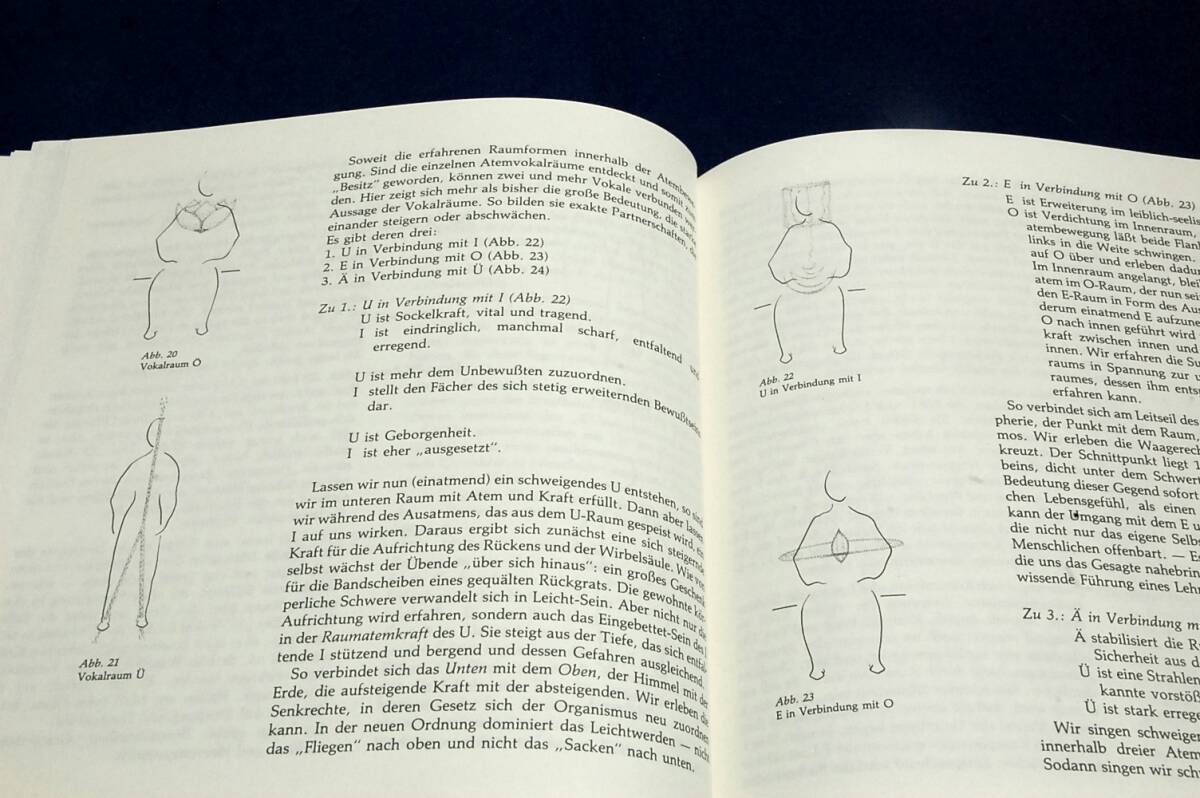 Abb. 20
Vokalraum Ö
Abb. 21
Vokalraum Ü
Soweit die erfahrenen Raumformen innerhalb der Atembewe-
gung. Sind die einzelnen Atemvokalräume entdeckt und somit zum
„Besitz" geworden, können zwei und mehr Vokale verbunden wer-
den. Hier zeigt sich mehr als bisher die große Bedeutung, die starke
Aussage der Vokalräume. So bilden sie exakte Partnerschaften, die
einander steigern oder abschwächen.
Es gibt deren drei:
1. U in Verbindung mit I (Abb. 22)
2. E in Verbindung mit O (Abb. 23)
3. Ä in Verbindung mit Ü (Abb. 24)
Zu 1.: U in Verbindung mit I (Abb. 22)
U ist Sockelkraft, vital und tragend.
I ist eindringlich, manchmal scharf, entfaltend und
erregend.
U ist mehr dem Unbewußten zuzuordnen.
I stellt den Fächer des sich stetig erweiternden Bewußtseins
dar.
U ist Geborgenheit.
I ist eher „ausgesetzt".
Lassen wir nun (einatmend) ein schweigendes U entstehen, so sind
wir im unteren Raum mit Atem und Kraft erfüllt. Dann aber lassen
wir während des Ausatmens, das aus dem U-Raum gespeist wird, ein
I auf uns wirken. Daraus ergibt sich zunächst eine sich steigernde
Kraft für die Aufrichtung des Rückens und der Wirbelsäule. Wie von
selbst wächst der Übende „über sich hinaus": ein großes Geschenk
für die Bandscheiben eines gequälten Rückgrats. Die gewohnte kör-
perliche Schwere verwandelt sich in Leicht-Sein. Aber nicht nur die
Aufrichtung wird erfahren, sondern auch das Eingebettet-Sein des I
in der Raumatemkraft des U. Sie steigt aus der Tiefe, das sich entfal-
tende I stützend und bergend und dessen Gefahren ausgleichend.
So verbindet sich das Unten mit dem Oben, der Himmel mit der
Erde, die aufsteigende Kraft mit der absteigenden. Wir erleben die
Senkrechte, in deren Gesetz sich der Organismus neu zuordnen
kann. In der neuen Ordnung dominiert das Leichtwerden — nicht
das „Fliegen" nach oben und nicht das „Sacken" nach unten.
Abb. 22
U in Verbindung mit I
Abb. 23
E in Verbindung mit O
Zu 2.: E in Verbindung mit O (Abb. 23)
E ist Erweiterung im leiblich-seelis
O ist Verdichtung im Innenraum,
atembewegung läßt beide Flan
links in die Weite schwingen.
auf O über und erleben dadu
Im Innenraum angelangt, blei
atem im O-Raum, der nun sei
den E-Raum in Form des Aus
derum einatmend E aufzune
O nach innen geführt wird
kraft zwischen innen und
innen. Wir erfahren die Su
raums in Spannung zur v
raumes, dessen ihm entsp
erfahren kann.
So verbindet sich am Leitseil des
pherie, der Punkt mit dem Raum,
mos. Wir erleben die Waagerech
kreuzt. Der Schnittpunkt liegt 1
beins, dicht unter dem Schwert
Bedeutung dieser Gegend sofort
chen Lebensgefühl, als einen
kann der Umgang mit dem E u
die nicht nur das eigene Selbs
Menschlichen offenbart. — E
die uns das Gesagte nahebring
wissende Führung eines Lehr
Zu 3.: Ä in Verbindung m
Ä stabilisiert die R
Sicherheit aus d
Ü ist eine Strahlen
kannte vorstöß
Ü ist stark errege
Wir singen schweigen
innerhalb dreier Atem
Sodann singen wir sch